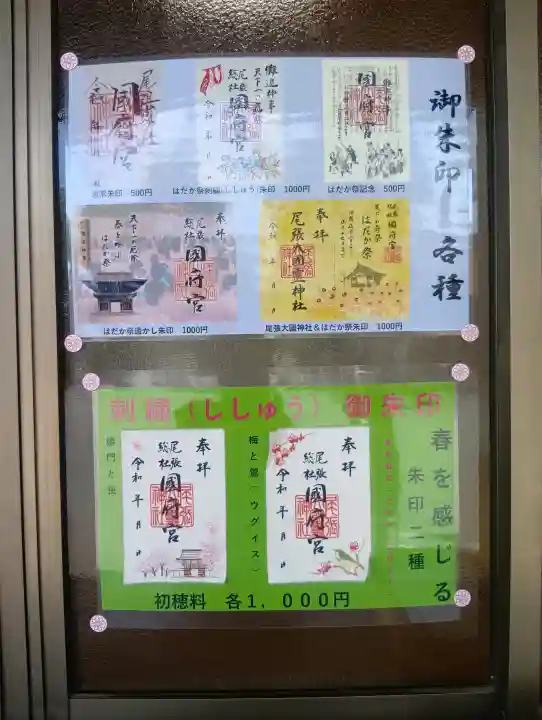 御朱印 各種
國府宮
500円
儺追神事
天下一の
令和 年 月 日
尾張
総社
國府宮
はだか祭刺繍(ししゅう)朱印 1000円
儺追神事
國府宮
はだか祭記念 500円
奉拝
尾張
総社
國府宮
天下の厄除
はだか祭
はだか祭透かし朱印 1000円
國府宮
はだか祭
奉拝
尾張大國霊神社
令和 年 月 日
尾張大國神社&はだか祭朱印 1000円
刺繍(ししゅう)御朱印
春を感じる
朱印二種
梅と鶯(ウグイス)
奉拝
尾張
総社
國府宮
令和 年 月 日
奉拝
尾張
総社
國府宮
令和 年 月 日
初穂料 各1,000円